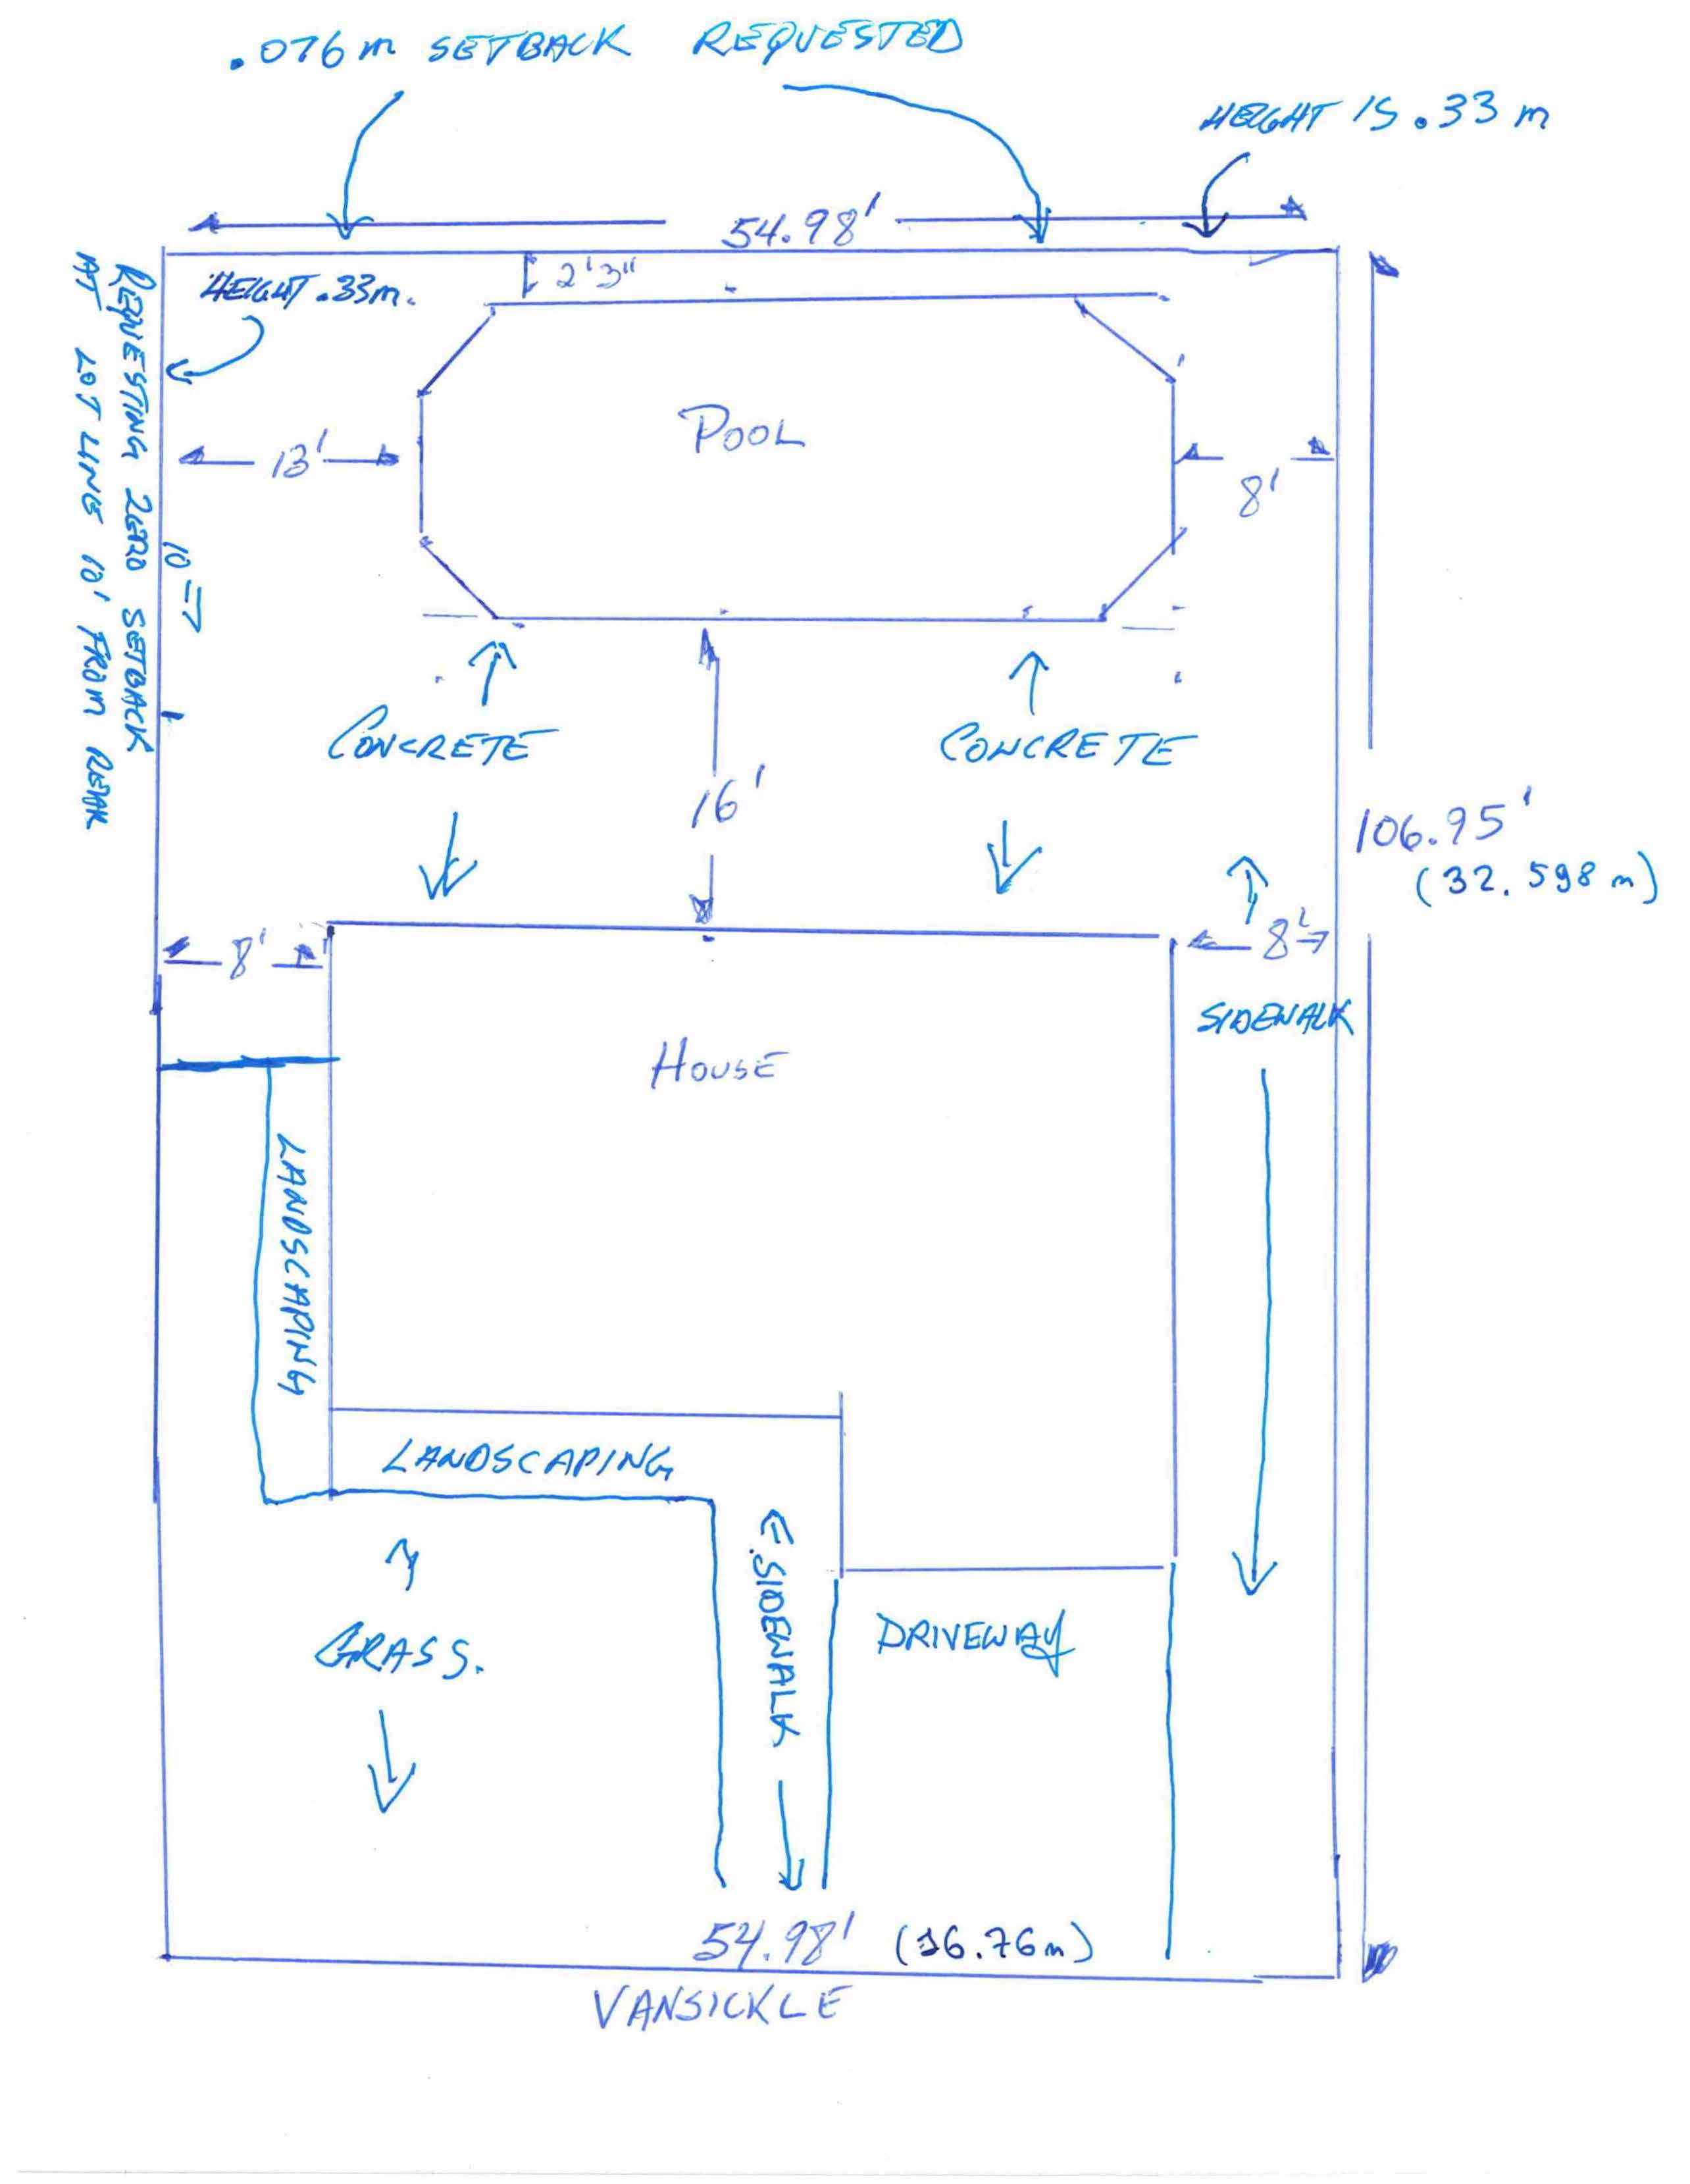 .076 m SETBACK REQUESTED
HEIGHT 15.33 m
54.98'
HEIGHT .33m.
2'3"
REQUESTING ZERO SETBACK
AT LOT LINE 10' FROM REAR
POOL
13'
8'
10
CONCRETE
CONCRETE
16'
106.95'
(32.598 m)
8'
8'
SIDEWALK
HOUSE
LANDSCAPING
LANDSCAPING
SIDEWALK
DRIVEWAY
GRASS.
54.98' (16.76m)
VANSICKLE